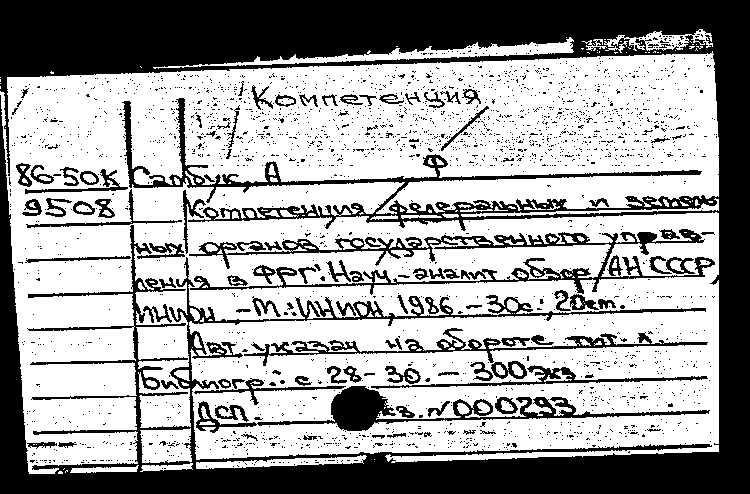 Компетенция
Ф
86-50К Самбук, А
9508 Компетенция федеральных и земель
ных органов государственного управ-
ления в ФРГ: Науч.-аналит. обзор / АН СССР,
ИНИОН. - М.: ИНИОН, 1986. - 30с.; 20см.
Авт. указан на обороте тит. л.
Библиогр.: с. 28-30. - 300 экз.
ДСП. кз. N000293